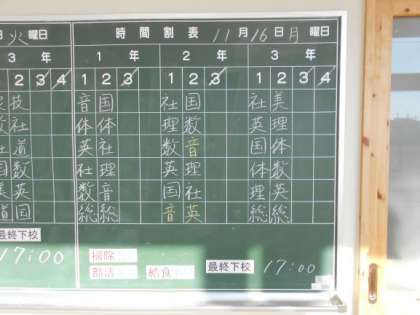 火 曜日 時間割表 11月16日月曜日
3年 1年 2年 3年
2 3 4 1 2 3 1 2 3 4 1 2 3 4
技 音 国 社 国 社 美
社 体 体 理 数 英 理
道 英 社 数 音 国 体
数 社 理 英 理 体 数
英 数 音 国 社 理 英
道 国 総 総 音 英 総 総
最終下校
17:00 掃除
部活 給食 最終下校 17:00